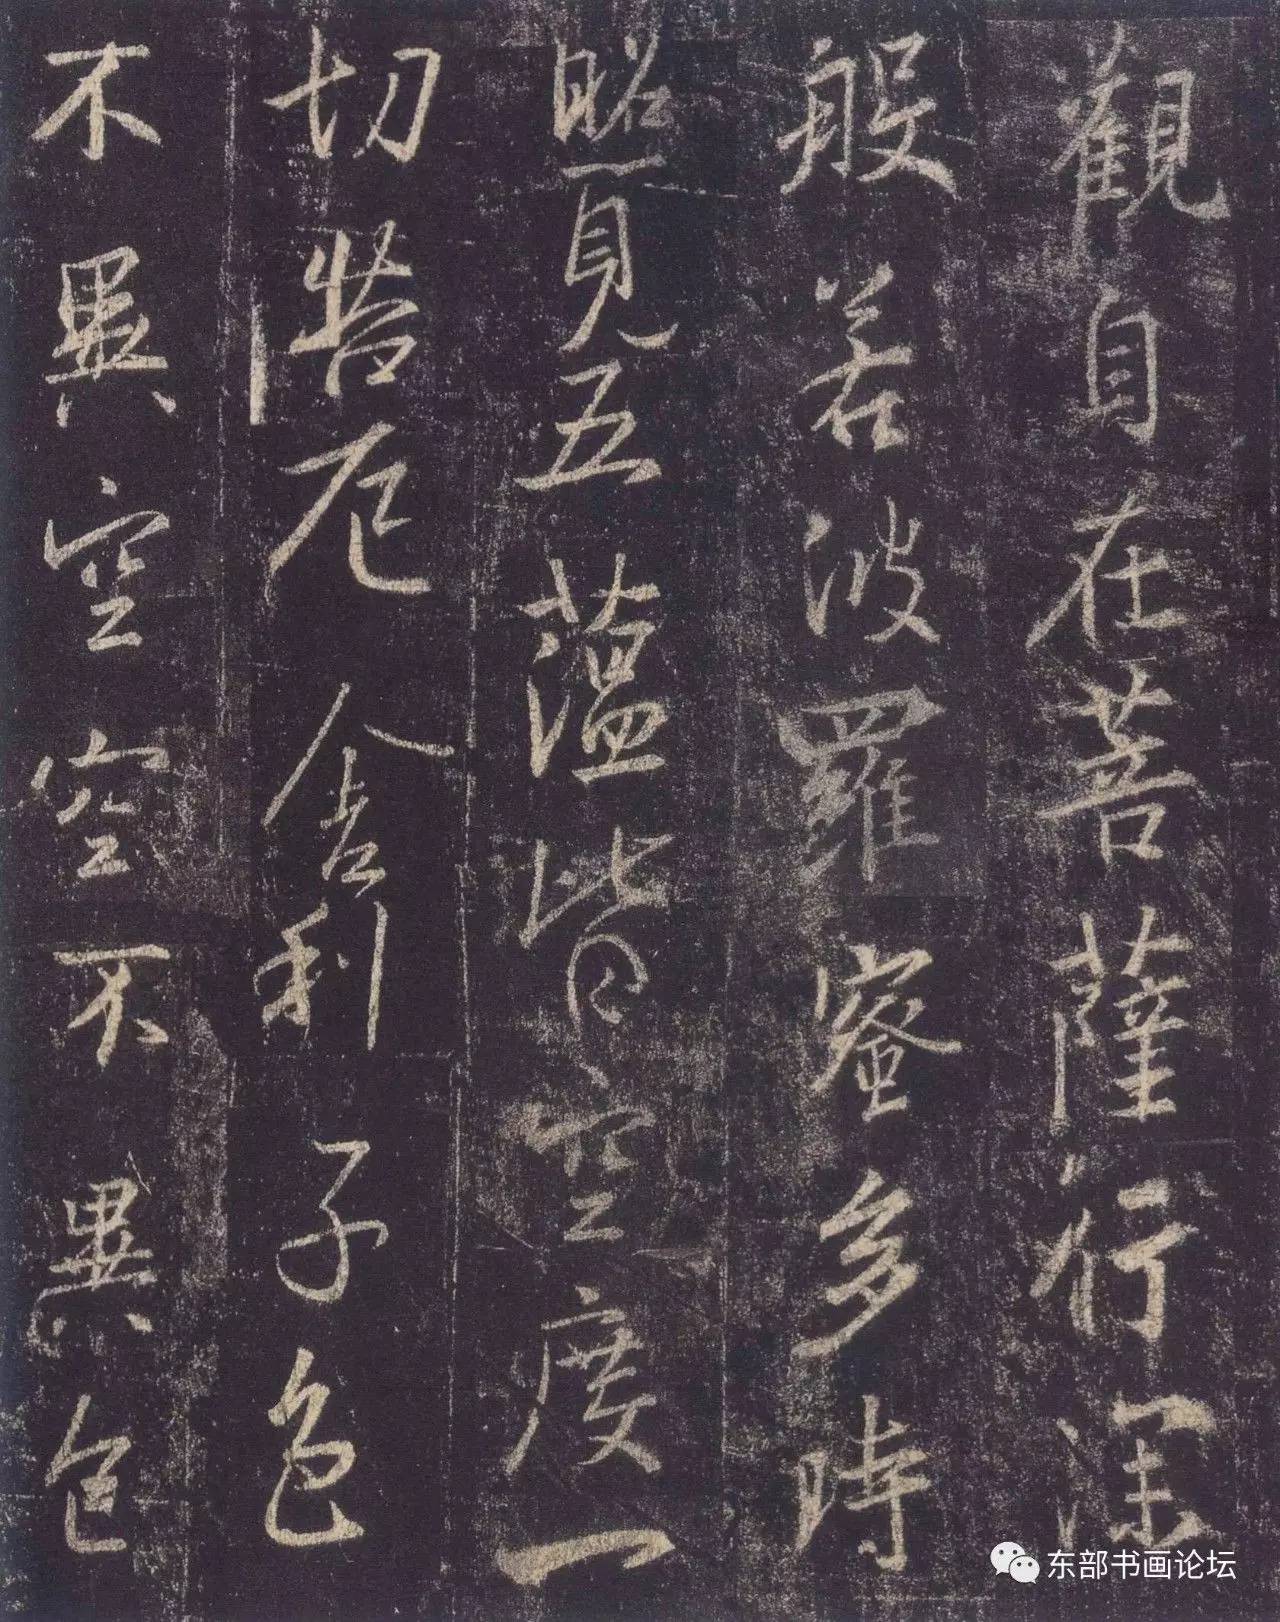 觀自在菩薩行深
般若波羅蜜多時
照見五蘊皆空度一
切苦厄舍利子色
不異空空不異色
东部书画论坛